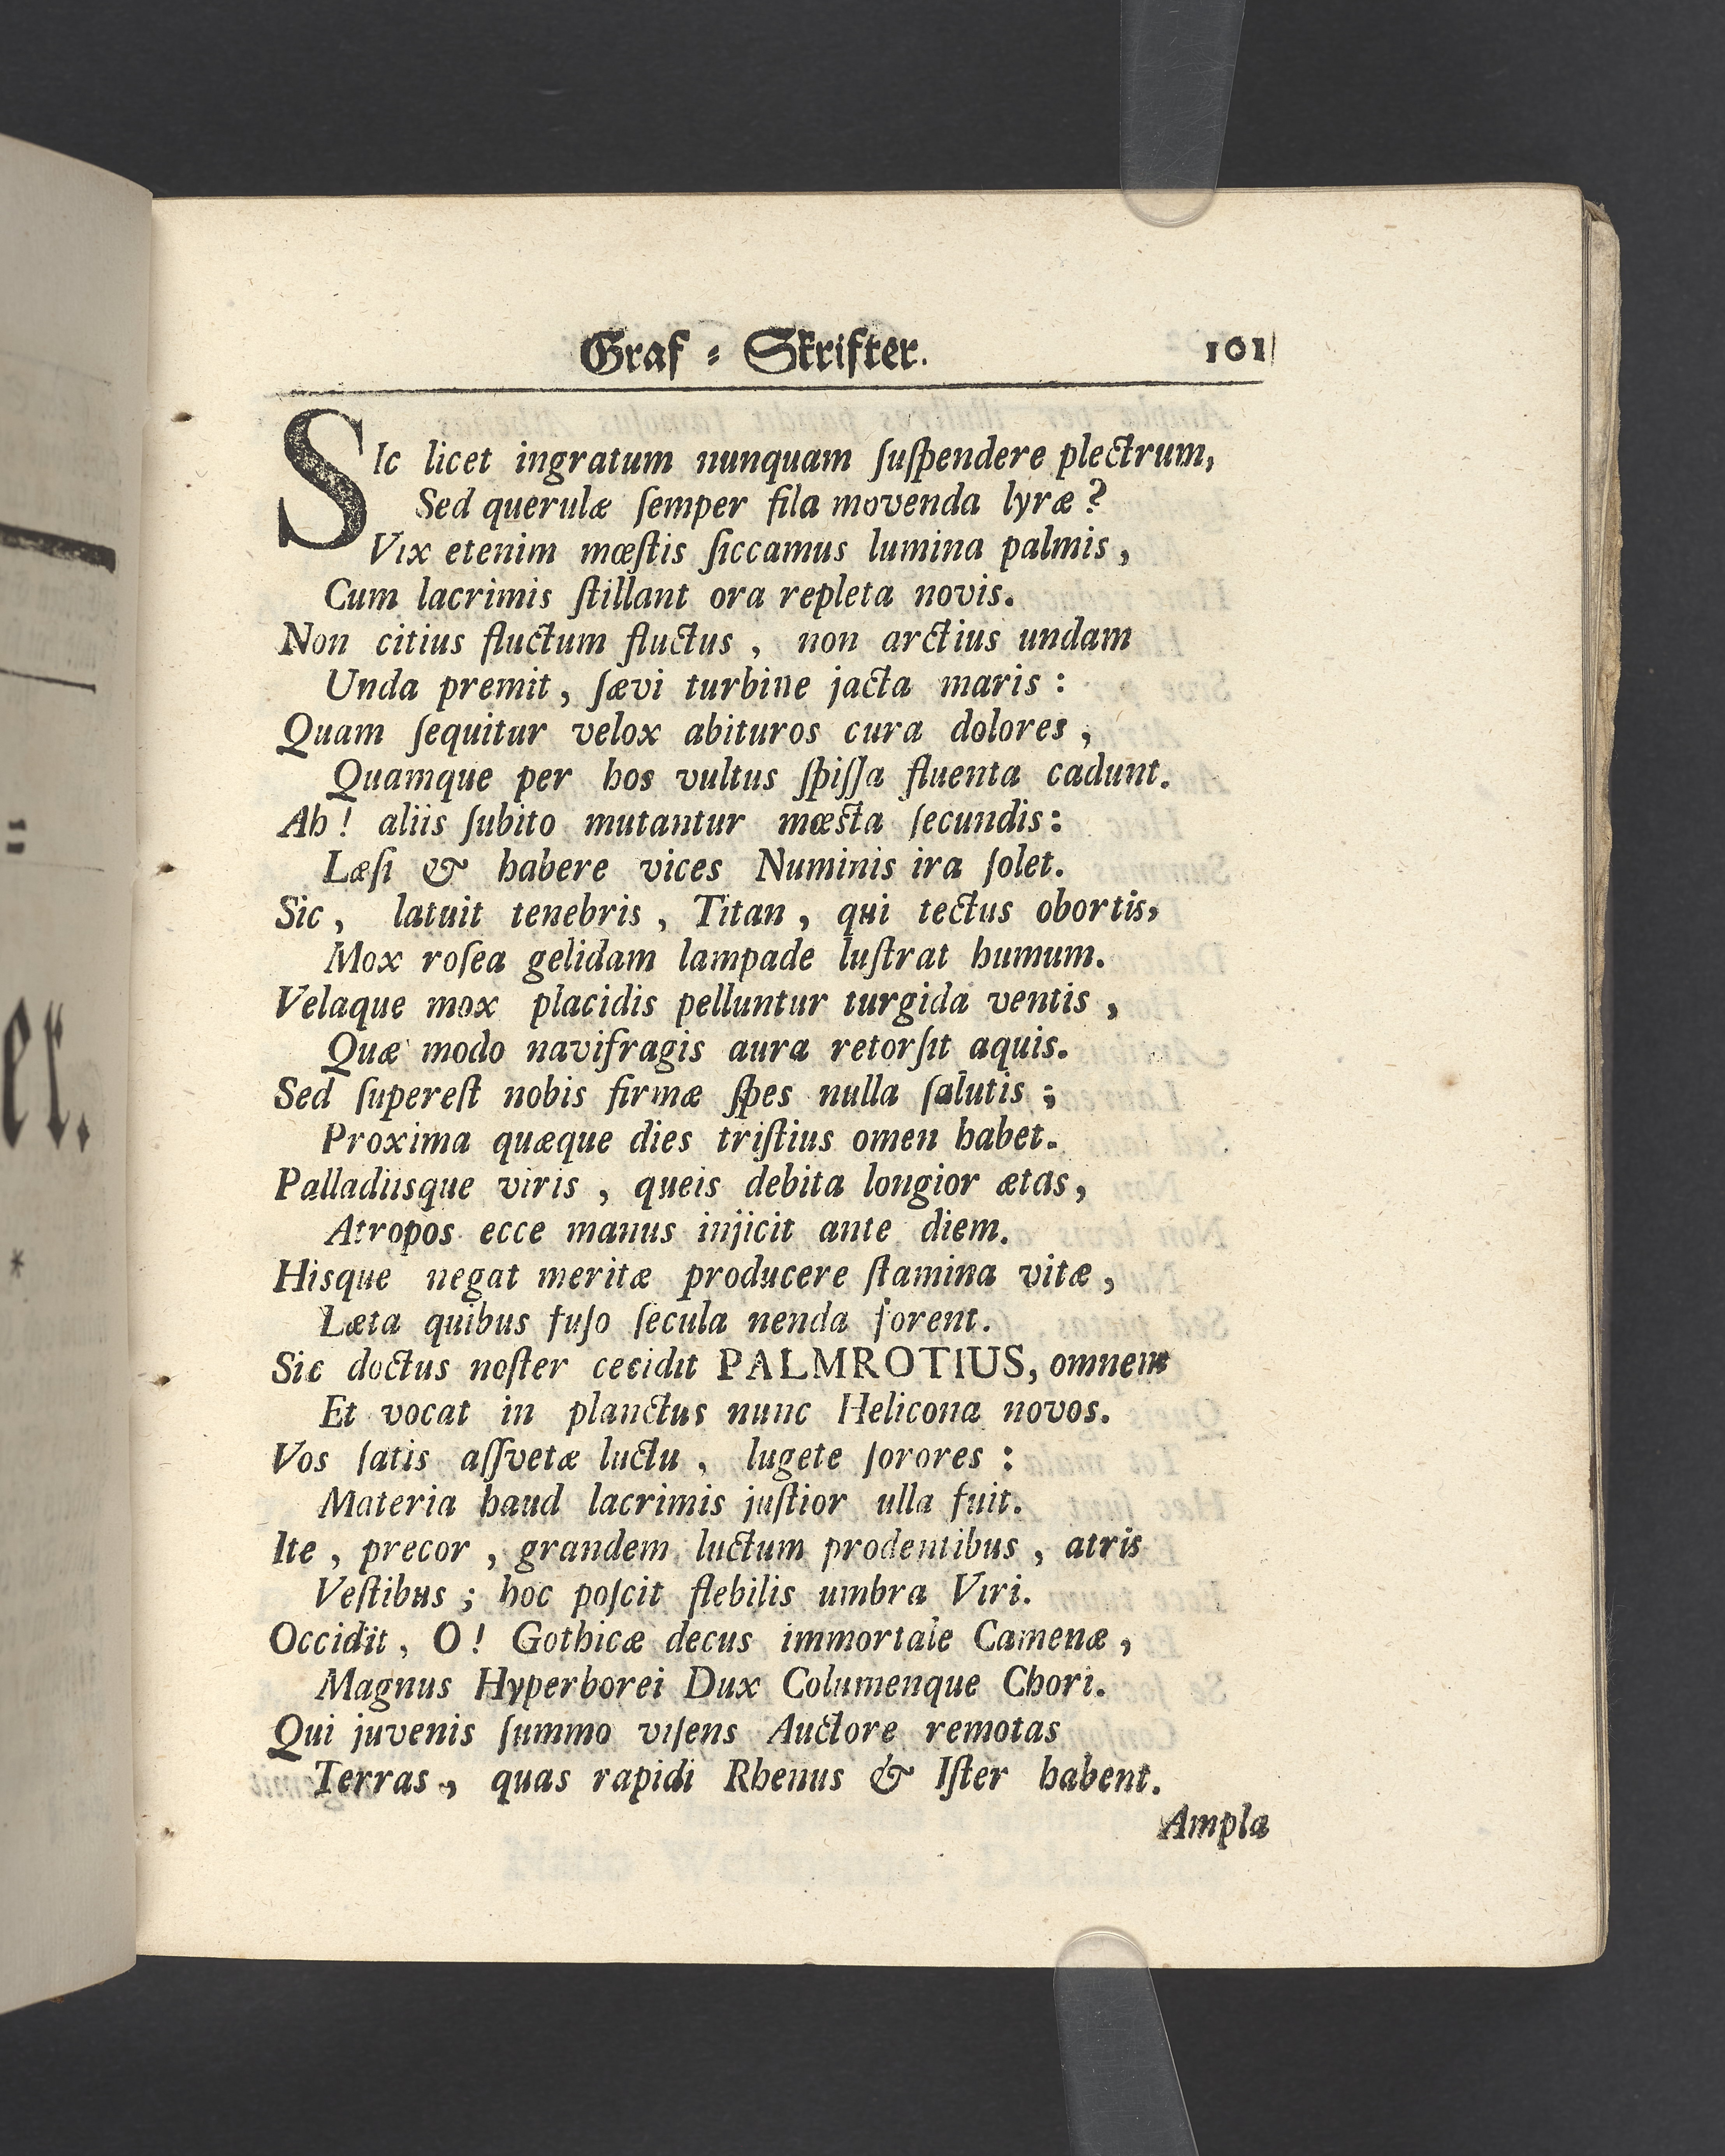 Graf - Skrifter. 101
SIc licet ingratum nunquam ſuſpendere plectrum,
Sed querulæ ſemper fila movenda lyræ?
Vix etenim mœſtis ſiccamus lumina palmis,
Cum lacrimis ſtillant ora repleta novis.
Non citius fluctum fluctus, non arctius undam
Unda premit, ſævi turbine jacta maris:
Quam ſequitur velox abituros cura dolores,
Quamque per hos vultus ſpiſſa fluenta cadunt.
Ah! aliis ſubito mutantur mœsta ſecundis:
Læſi & habere vices Numinis ira ſolet.
Sic, latuit tenebris, Titan, qui tectus obortis,
Mox roſea gelidam lampade luſtrat humum.
Velaque mox placidis pelluntur turgida ventis,
Quæ modo navifragis aura retorſit aquis.
Sed ſupereſt nobis firmæ ſpes nulla ſalutis;
Proxima quæque dies triſtius omen habet.
Palladiisque viris, queis debita longior ætas,
Atropos ecce manus injicit ante diem.
Hisque negat meritæ producere ſtamina vitæ,
Læta quibus fuſo ſecula nenda forent.
Sic doctus noſter cecidit PALMROTIUS, omnem
Et vocat in planctus nunc Helicona novos.
Vos ſatis aſſvetæ luctu, lugete ſorores:
Materia haud lacrimis juſtior ulla fuit.
Ite, precor, grandem luctum prodentibus, atris
Veſtibus; hoc poſcit flebilis umbra Viri.
Occidit, O! Gothicæ decus immortale Camenæ,
Magnus Hyperborei Dux Columenque Chori.
Qui juvenis ſummo viſens Auctore remotas
Terras, quas rapidi Rhenus & Iſter habent.
Ampla
er.
*